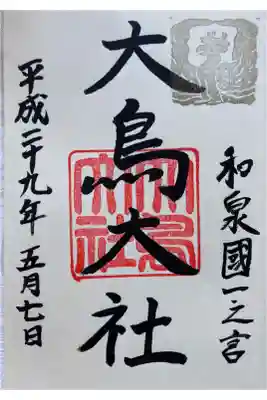 和泉國一之宮
大鳥大社
大鳥大社
平成二十九年 五月七日